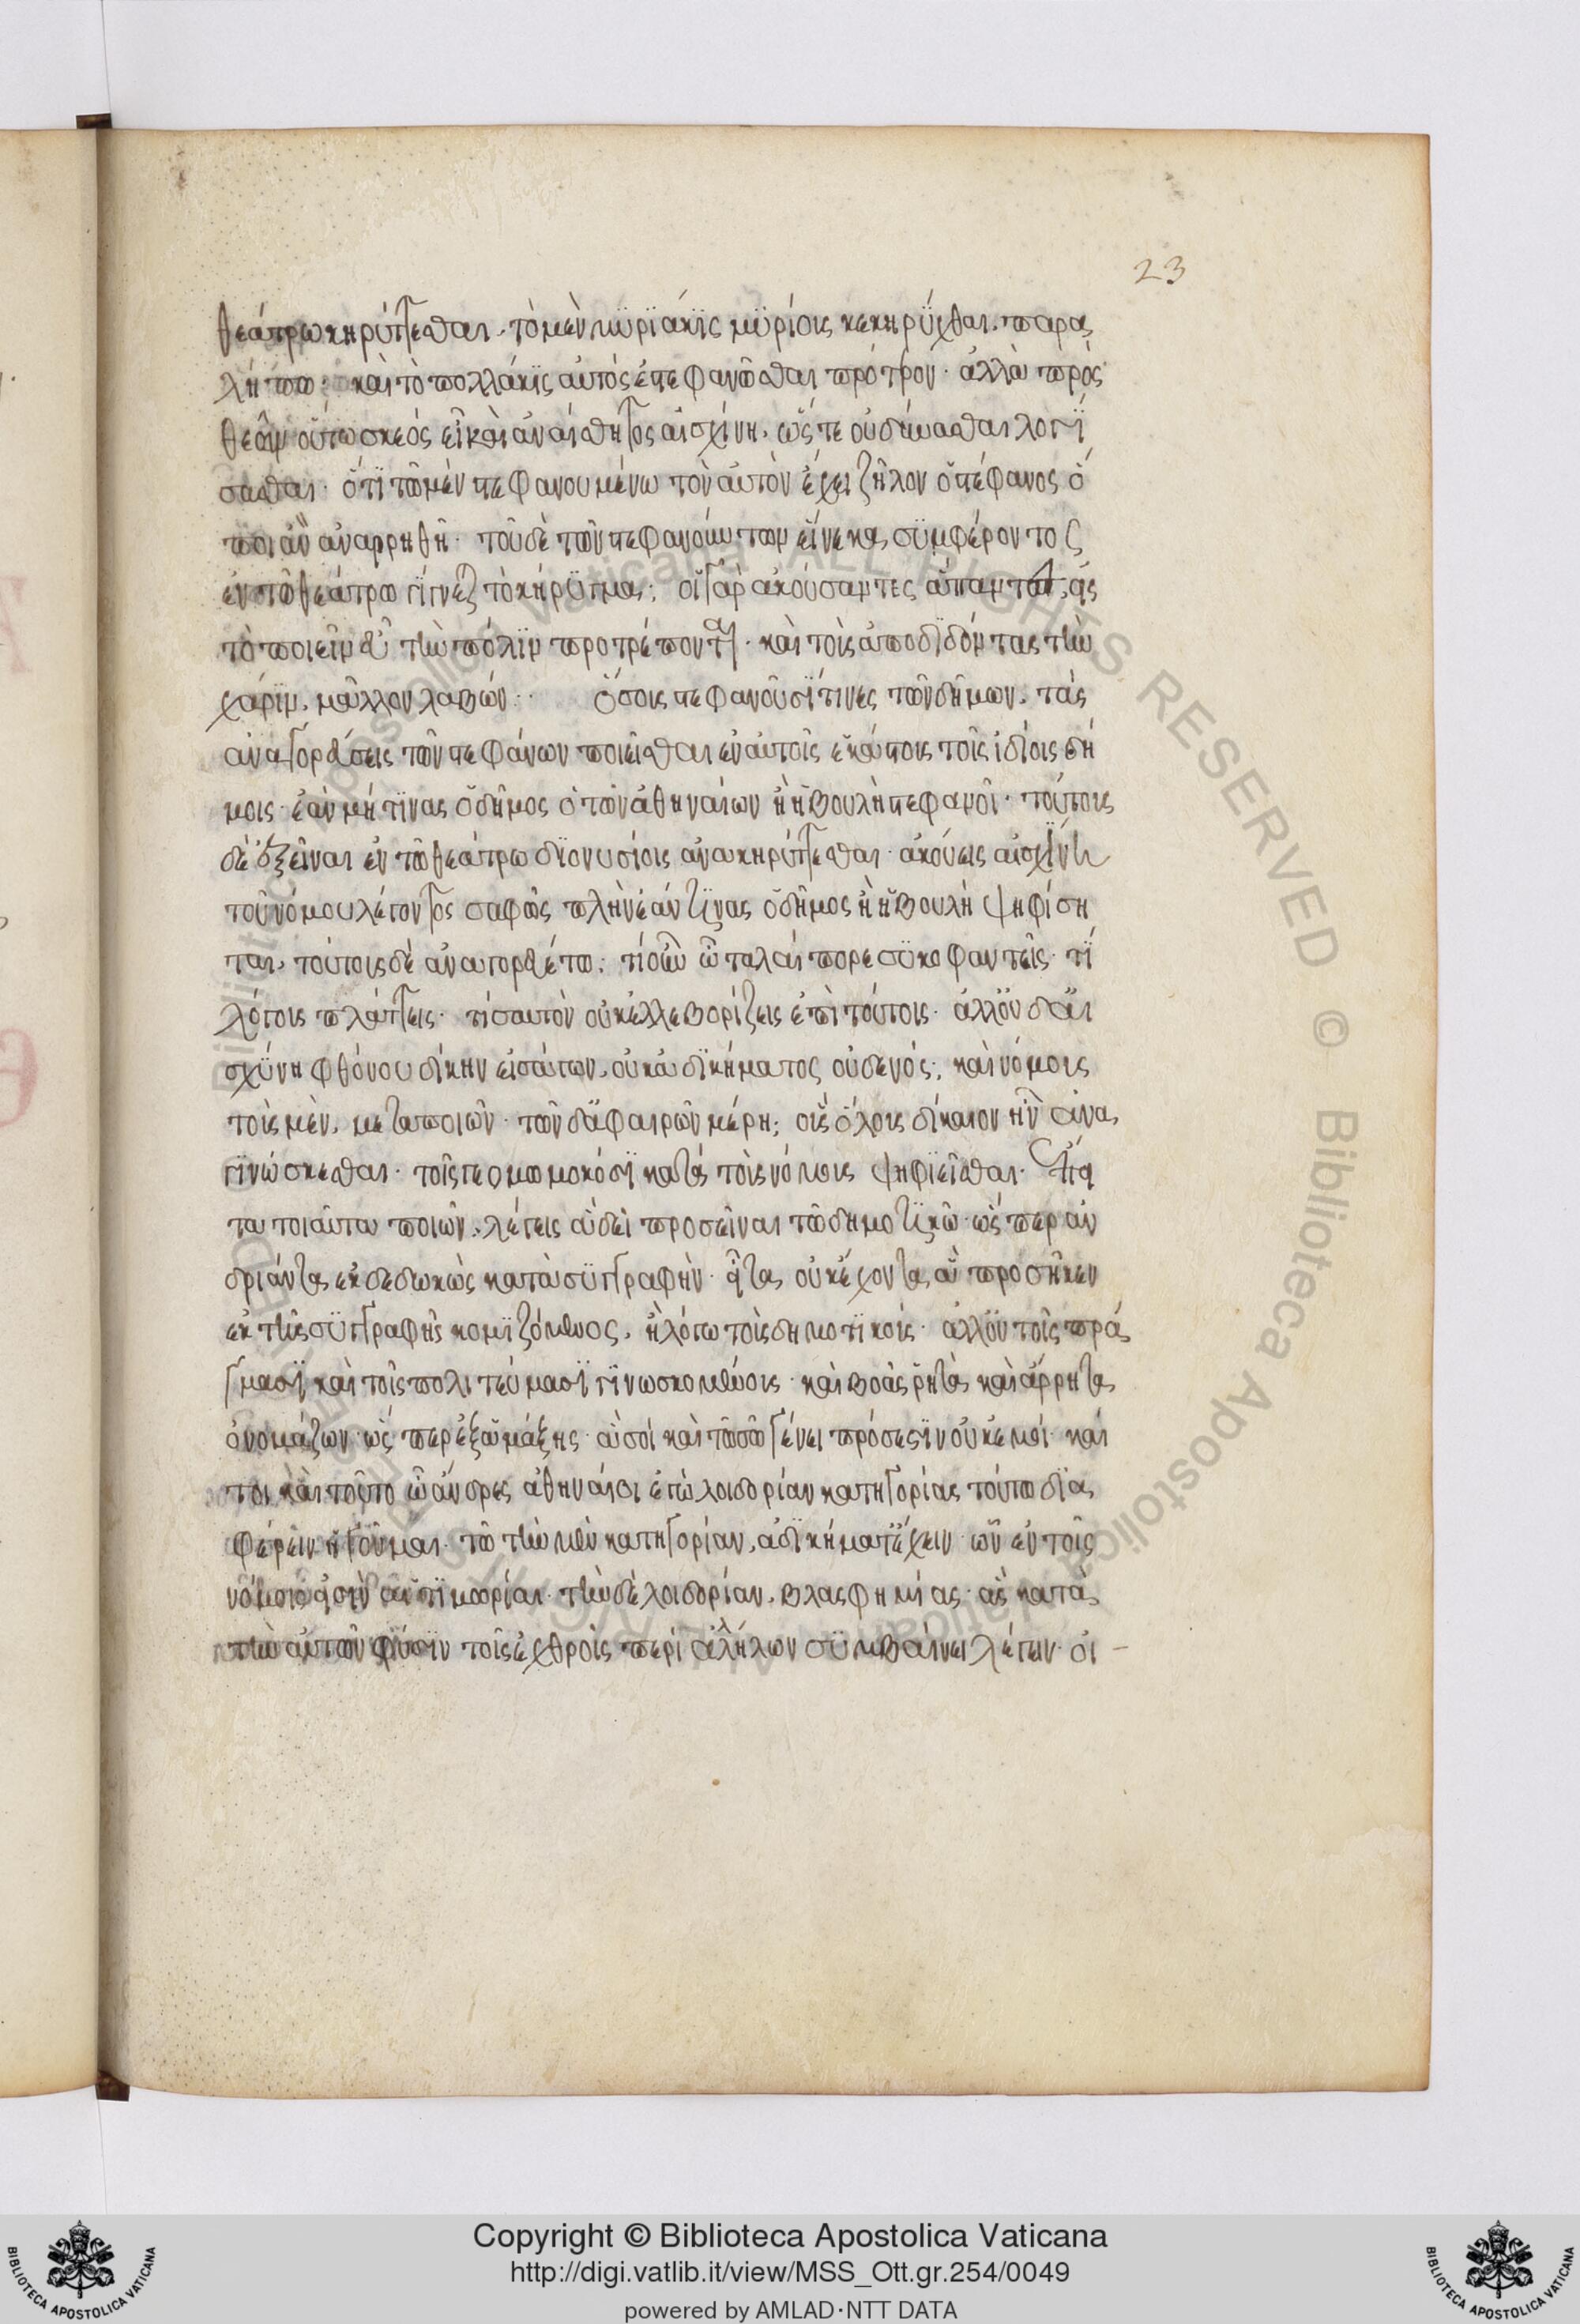 23
θεάτρω κηρύττεσθαι. τὸ μὲν μϋρϊάκϊς μϋρίους κεκηρῦχθαι. παρα
λείπω· καὶ τὸ πολλάκϊς αὐτὸς ἐστεφανῶσθαι πρότερον· ἀλλὰ πρὸς
θεῶν οὕτω σκαιὸς εἶ καὶ ἀναίσθητος αἰσχίνη. ὥστε οὐ δύνασαι λογί
σασθαι· ὅτϊ τῶ μὲν στεφανουμένω τὸν αὐτὸν ἔχει ζῆλον ὁ στέφανος ὅ
που ἂν ἀναρρηθῆ· τοῦ δὲ τῶν στεφανούντων εἵνεκα συμφέροντος
ἐν τῶ θεάτρω γίγνεται τὸ κήρϋγμα· οἱ γὰρ ἀκούσαντες ἅπαντες εἰς
τὸ ποιεῖν εὖ τὴν πόλϊν προτρέπονται· καὶ τοὺς ἀποδϊδόντας τὴν
χάρϊν. μᾶλλον λαβών· ὅσους στεφανοῦσί τινες τῶν δήμων. τὰς
ἀναγορεύσεις τῶν στεφάνων ποιεῖσθαι ἐν αὐτοῖς ἑκάστους τοῖς ἰδίοις δή
μοις· ἐὰν μή τϊνας ὁ δῆμος ὁ τῶν ἀθηναίων ἢ ἡ βουλὴ στεφανοῖ· τούτους
δὲ ἐξεῖναι ἐν τῶ θεάτρω διονυσίοις ἀνακηρύττεσθαι· ἀκούεις αἰσχίνη
τοῦ νόμου λέγοντος σαφῶς πλὴν ἐάν τϊνας ὁ δῆμος ἢ ἡ βουλὴ ψηφίση
ται. τούτους δὲ ἀναγορευέτω· τί οὖν ὦ ταλαίπωρε συκοφαντεῖς· τί
λόγους πλάττεις· τί σαυτὸν οὐκ ἐλλεβορίζεις ἐπὶ τούτοις· ἀλλ' οὐδ' αἰ
σχύνη φθόνου δίκην εἰσάγων. οὐκ ἀδϊκήματος οὐδενός· καὶ νόμους
τοὺς μὲν. μεταποιῶν· τῶν δ' ἀφαιρῶν μέρη· οὓς ὅλους δίκαιον ἦν ἀνα
γινώσκεσθαι· τοῖς γε ὀμωμοκόσϊ κατὰ τοὺς νόμους ψηφϊεῖσθαι· ἔπειτα
τοιαῦτα ποιῶν. λέγεις ἃ δεῖ προσεῖναι τῶ δημοτϊκῶ· ὥσπερ ἀν
δριάντα ἐκδεδωκὼς κατὰ συγγραφὴν· εἶτα οὐκ ἔχοντα ἃ προσῆκεν
ἐκ τῆς συγγραφῆς κομϊζόμενος. ἢ λόγω τοὺς δημοτϊκούς· ἀλλ' οὐ τοῖς πρά
γμασϊ καὶ τοῖς πολιτεύμασϊ γϊνωσκομένους· καὶ βοᾶς ῥητὰ καὶ ἄρρητα
ὀνομάζων· ὥσπερ ἐξ ἁμάξης· ἃ σοὶ καὶ τῶ σῶ γένει πρόσεστιν οὐκ ἐμοί· καί
τοι καὶ τοῦτο ὦ ἄνδρες ἀθηναῖοι ἐγὼ λοιδορίαν κατηγορίας τούτω δια
φέρειν ἡγοῦμαι· τῶ τὴν μὲν κατηγορίαν. ἀδϊκήματ' ἔχειν· ὧν ἐν τοῖς
νόμοις εἰσὶν αἱ τϊμωρίαι· τὴν δὲ λοιδορίαν. βλασφημίας· ἃς κατὰ
τὴν αὐτῶν φύσϊν τοῖς ἐχθροῖς περὶ ἀλλήλων συμβαίνει λέγειν· οἰ
Copyright © Biblioteca Apostolica Vaticana
http://digi.vatlib.it/view/MSS_Ott.gr.254/0049
powered by AMLAD·NTT DATA